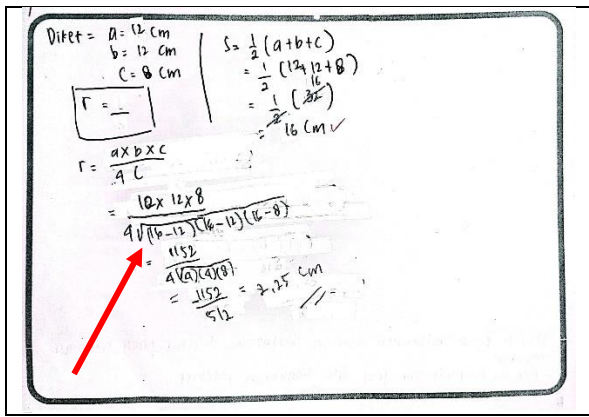 Diket = a = 12 cm
b = 12 cm
c = 8 cm
r = _
S = 1/2 (a+b+c)
= 1/2 (12+12+8)
= 1/2 (32) 16
= 16 cm ✓
r = a x b x c / 4 L
= 12 x 12 x 8 / 4√(16-12)(16-12)(16-8)
= 1152 / 4√(4)(4)(8)
= 1152 / 512 = 2,25 cm